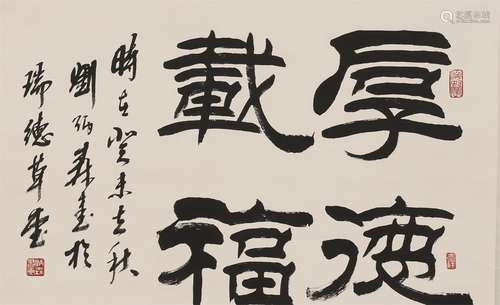 厚德
載福
時在癸未之秋
劉炳森書於
瑞德草堂